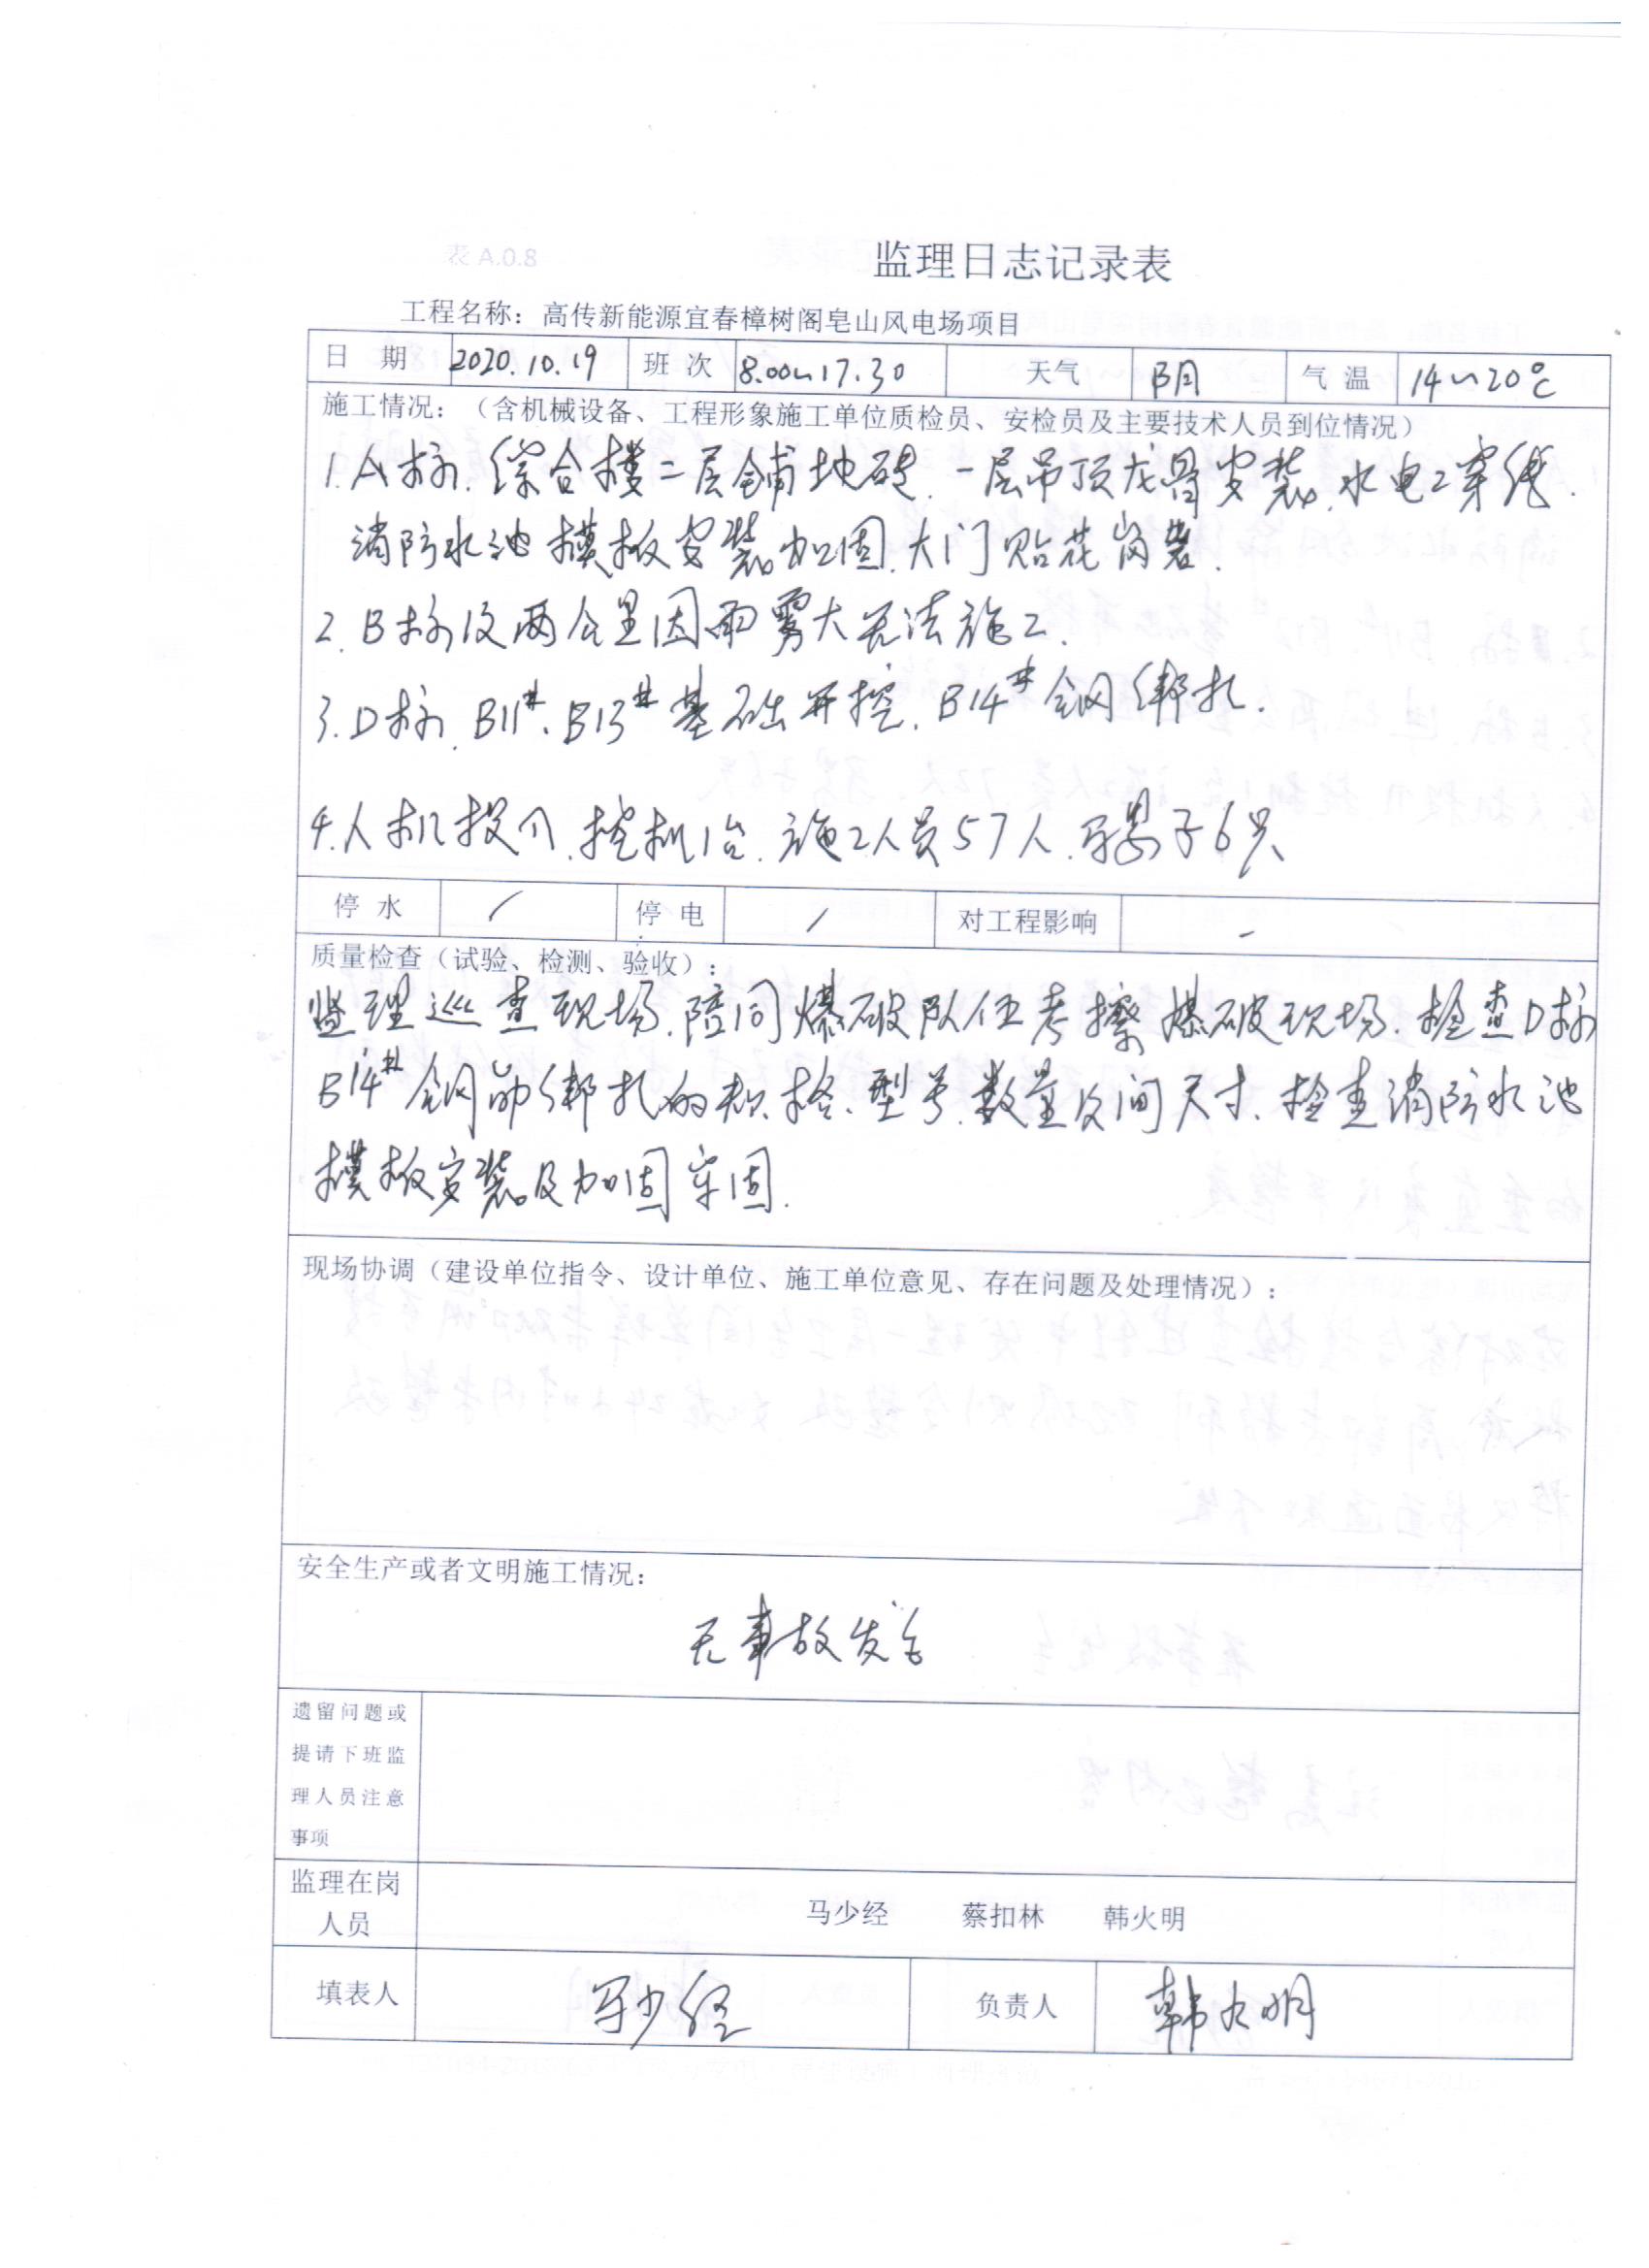 表 A.0.8
监理日志记录表
工程名称：高传新能源宜春樟树阁皂山风电场项目
日 期 2020.10.19 班 次 8.00~17.30 天气 阴 气 温 14~20℃
施工情况：（含机械设备、工程形象施工单位质检员、安检员及主要技术人员到位情况）
1.A标.综合楼二层铺地砖.一层吊顶龙骨安装.水电工穿线.
消防水池模板安装加固.大门贴花岗岩.
2.B标段两公里因雨雾大无法施工.
3.D标.B11#、B13#基础开挖.B14#钢绑扎.
4.人机投入.挖机1台.施工人员57人.子6只
停 水 / 停 电 / 对工程影响 -
质量检查（试验、检测、验收）：
监理巡查现场.陪同爆破队伍考擦爆破现场.检查D标
B14#钢筋绑扎的规格、型号.数量及间尺寸.检查消防水池
模板安装及加固牢固.
现场协调（建设单位指令、设计单位、施工单位意见、存在问题及处理情况）：
安全生产或者文明施工情况：
无事故发生
遗留问题或
提请下班监
理人员注意
事项
监理在岗
人员
马少经 蔡扣林 韩火明
填表人 马少经 负责人 韩火明